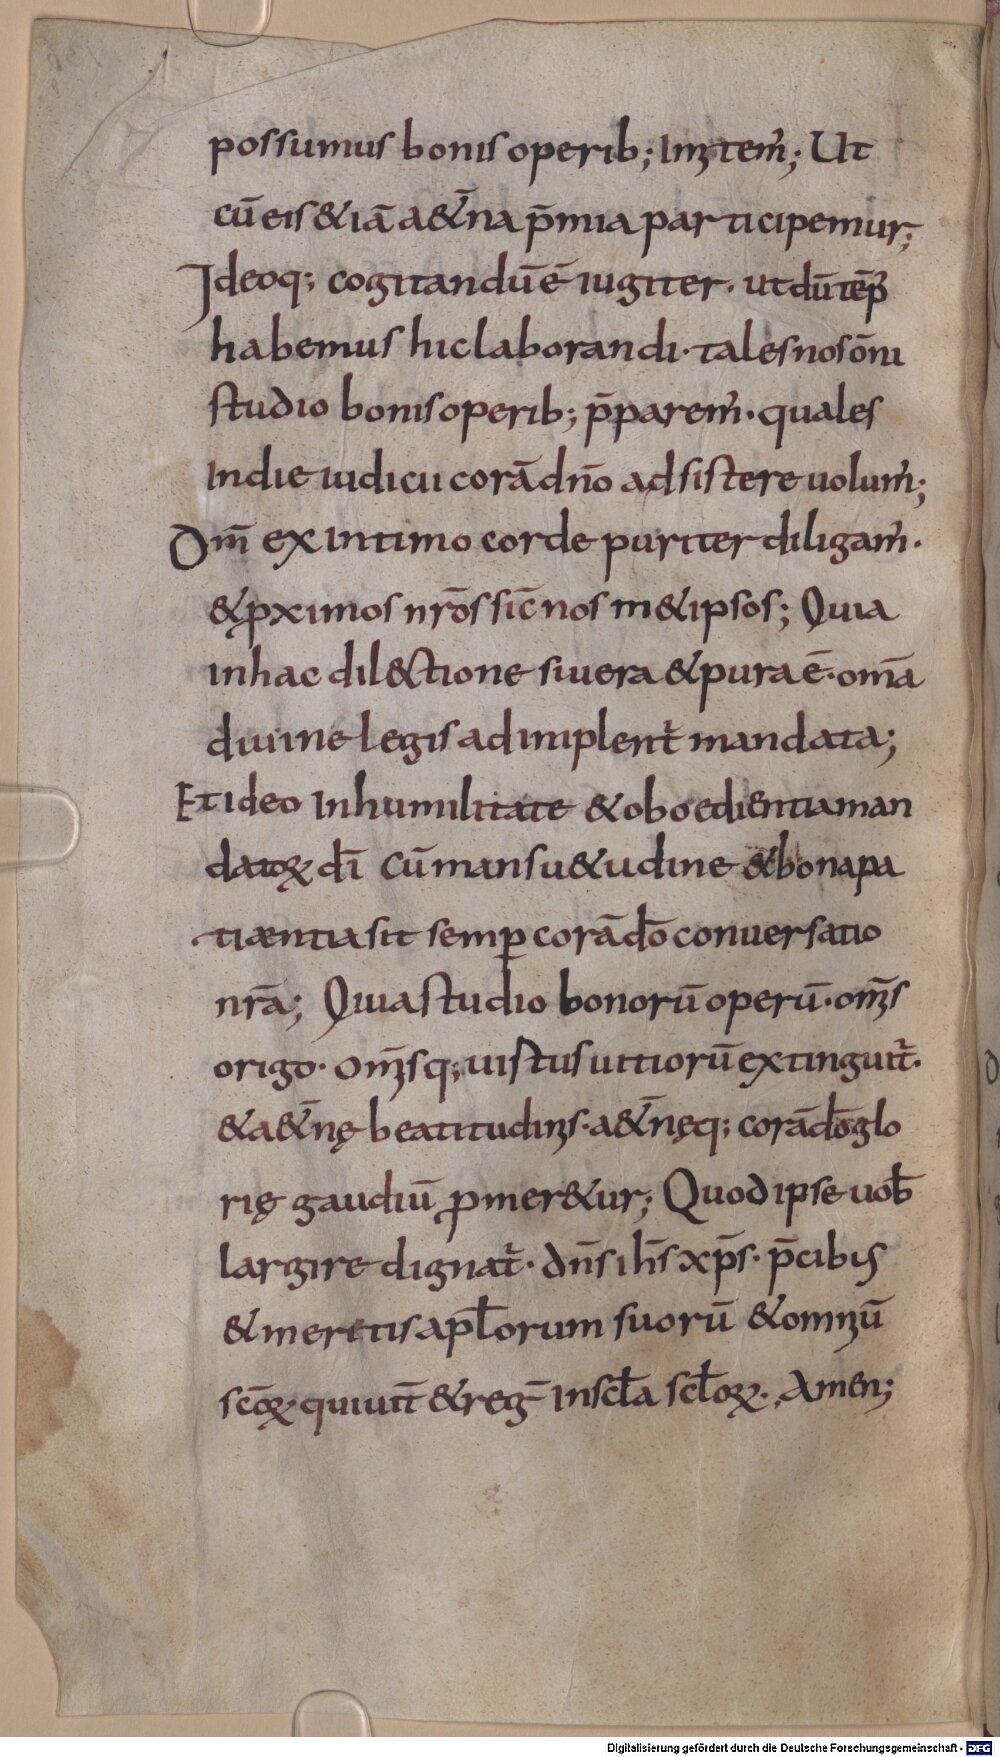 possumus bonis operib; Imitem̄; Ut
cū eis & iā a&̄na p̄mia participemur;
Ideoq; cogitandū ē iugiter· ut dū tēp̄
habemus hic laborandi· tales nos om̄i
studio bonis operib; p̄parem̄· quales
In die iudicii corā dn̄o adsistere uolum̄;
Dm̄ ex Intimo corde puriter diligam̄·
& ꝓximos nr̄os sic̄ nos m&ipsos; Quia
in hac dil&ctione si uera & pura ē· omā
diuine legis adimplent̄ mandata;
Et ideo In humilitate & oboedientia man
datoꝝ dī cū mansu&udine & bona pa
tiæntia sit semꝑ corā dō conuersatio
nr̄a; Quia studio bonorū operū· om̄s
origo· om̄isq; uistus uitiorū extinguit̄·
& a&̄nę beatitudinis· a&̄nęq; corā dō glo
rię gaudiū ꝓmer&ur; Quod ipse uob̄
largire dignat̄· dn̄s ih̄s xp̄s· p̄cibis
& meretis apl̄orum suorū & omniū
sc̄oꝝ· qui uiīt & reg̅ In scl̄a scl̄oꝝ· Amen;
Digitalisierung gefördert durch die Deutsche Forschungsgemeinschaft - DFG